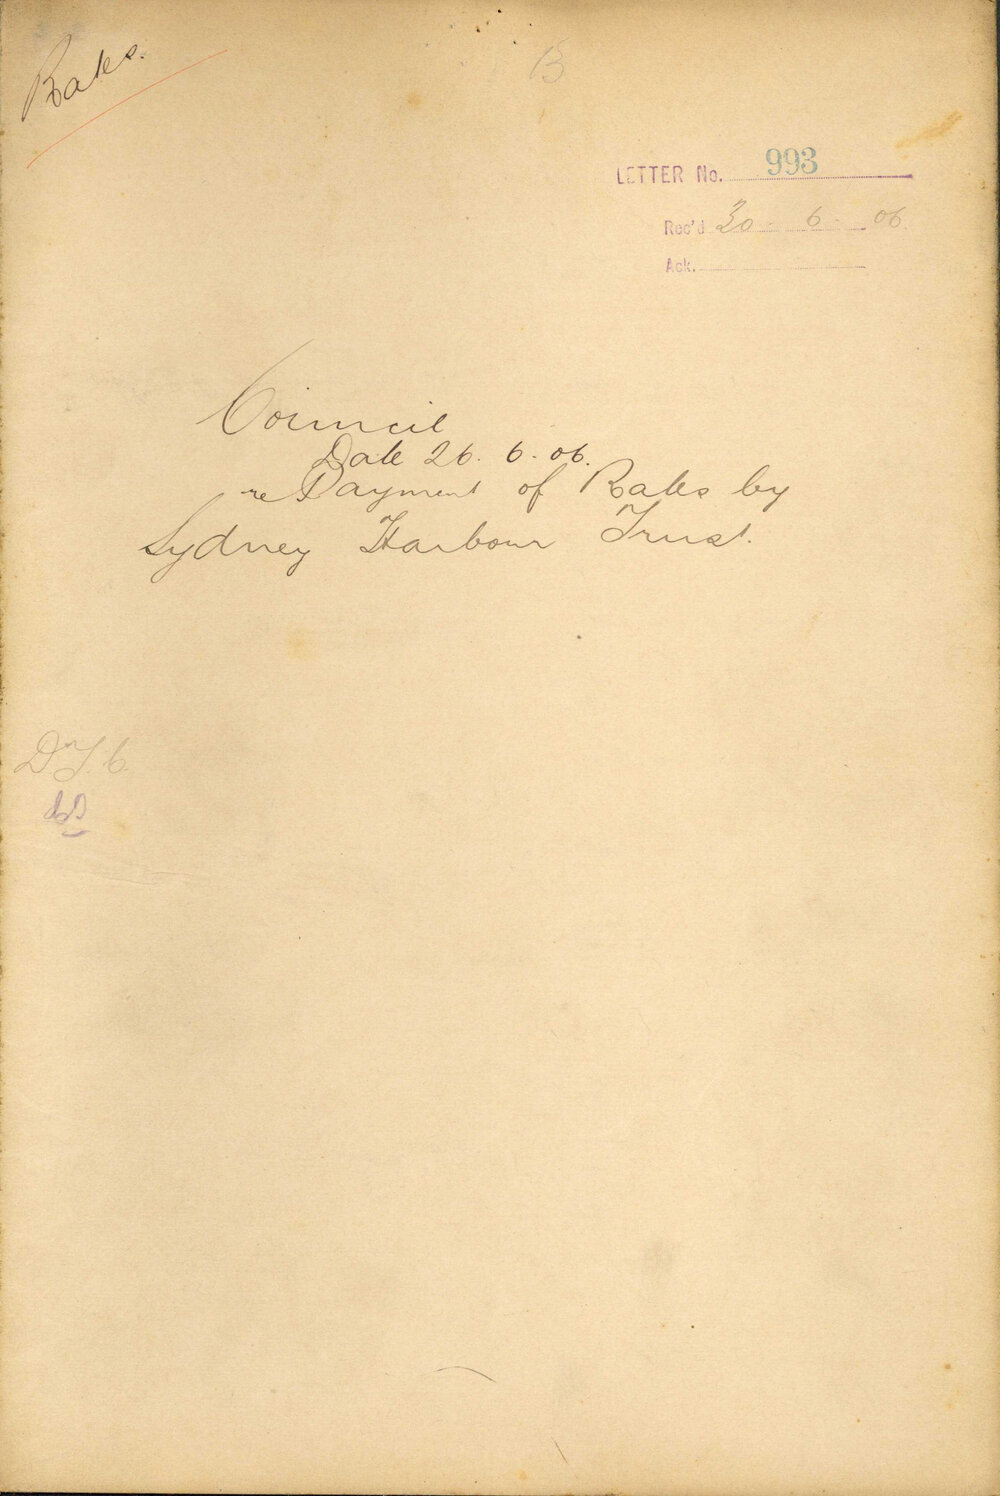 Rates.
B
LETTER No. 993
Rec'd 30 - 6 - 06
Ack.
Council
Date 26. 6. 06.
re Payment of Rates by
Sydney Harbour Trust.